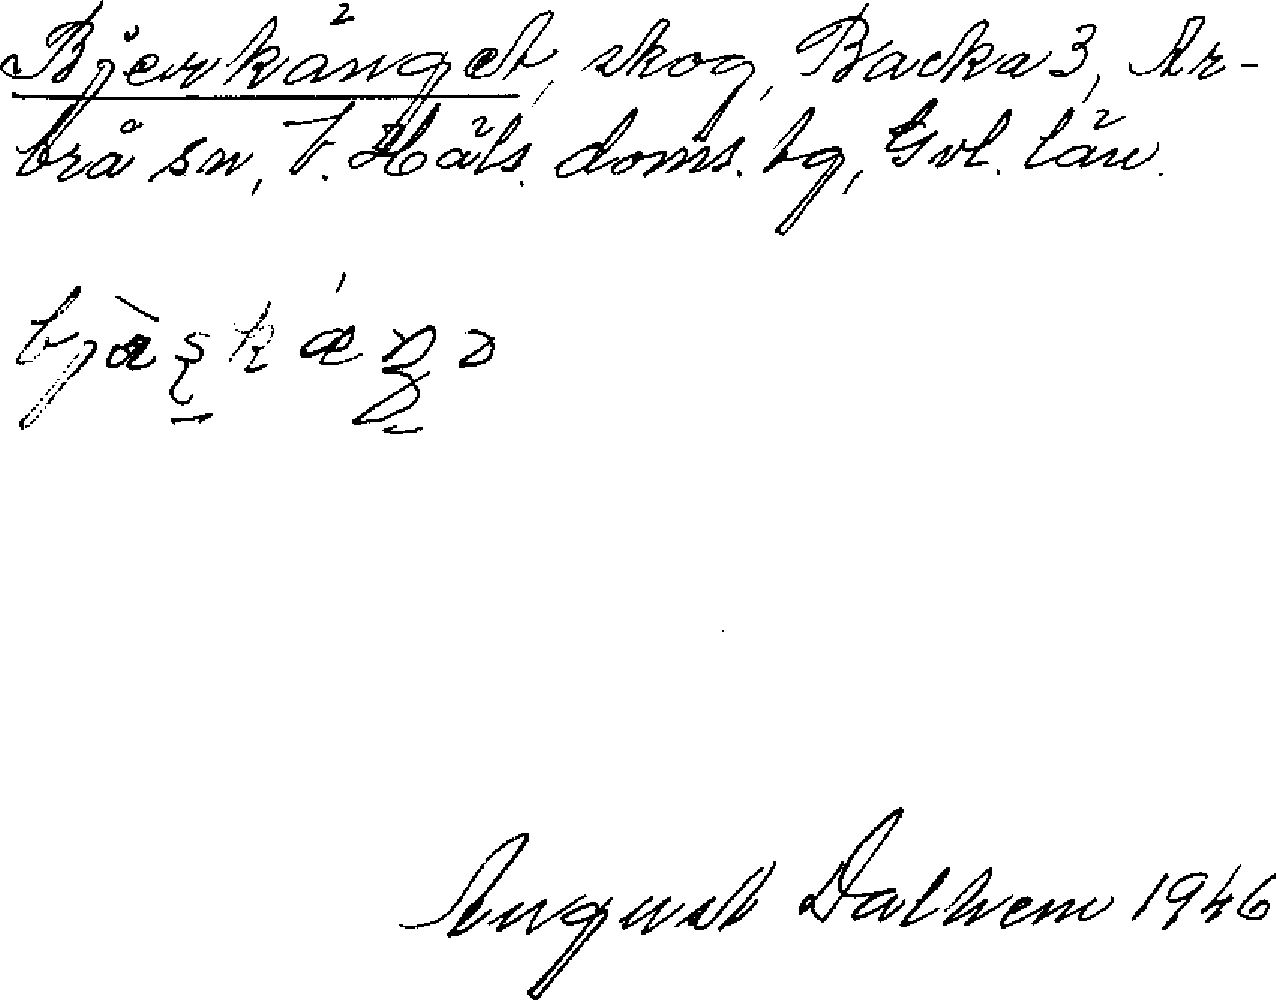 Bjerkänget, skog, Backa 3, Ar-
brå sn, V. Häls. doms. hg, Gvl. län.
August Dalhem 1946